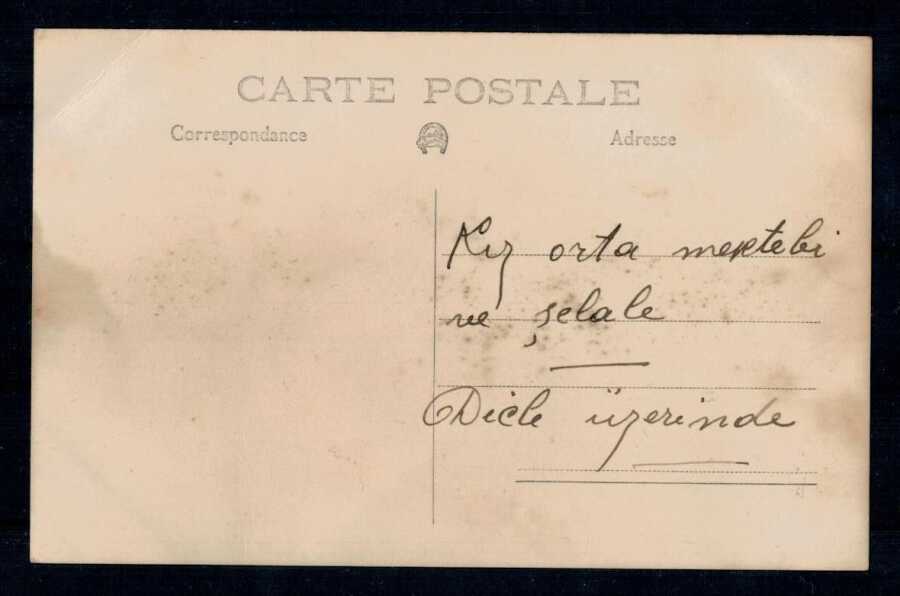 CARTE POSTALE
Correspondance
Adresse
Kız orta mektebi
ve şelale
Dicle üzerinde